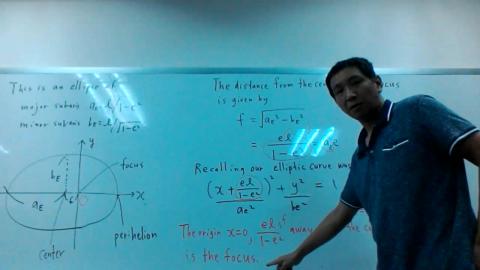 This is an ellipse of
major subaxis a_E = l/1-e²
minor subaxis b_E = l/√1-e²
y
focus
b_E
x
a_E
center
perihelion
The distance from the focus
is given by
f = √a_E² - b_E²
= el/1-e² a_E e
Recalling our elliptic curve was
(x + el/1-e²)²/a_E² + y²/b_E² = 1
The origin x=0, el/1-e² away
is the focus.